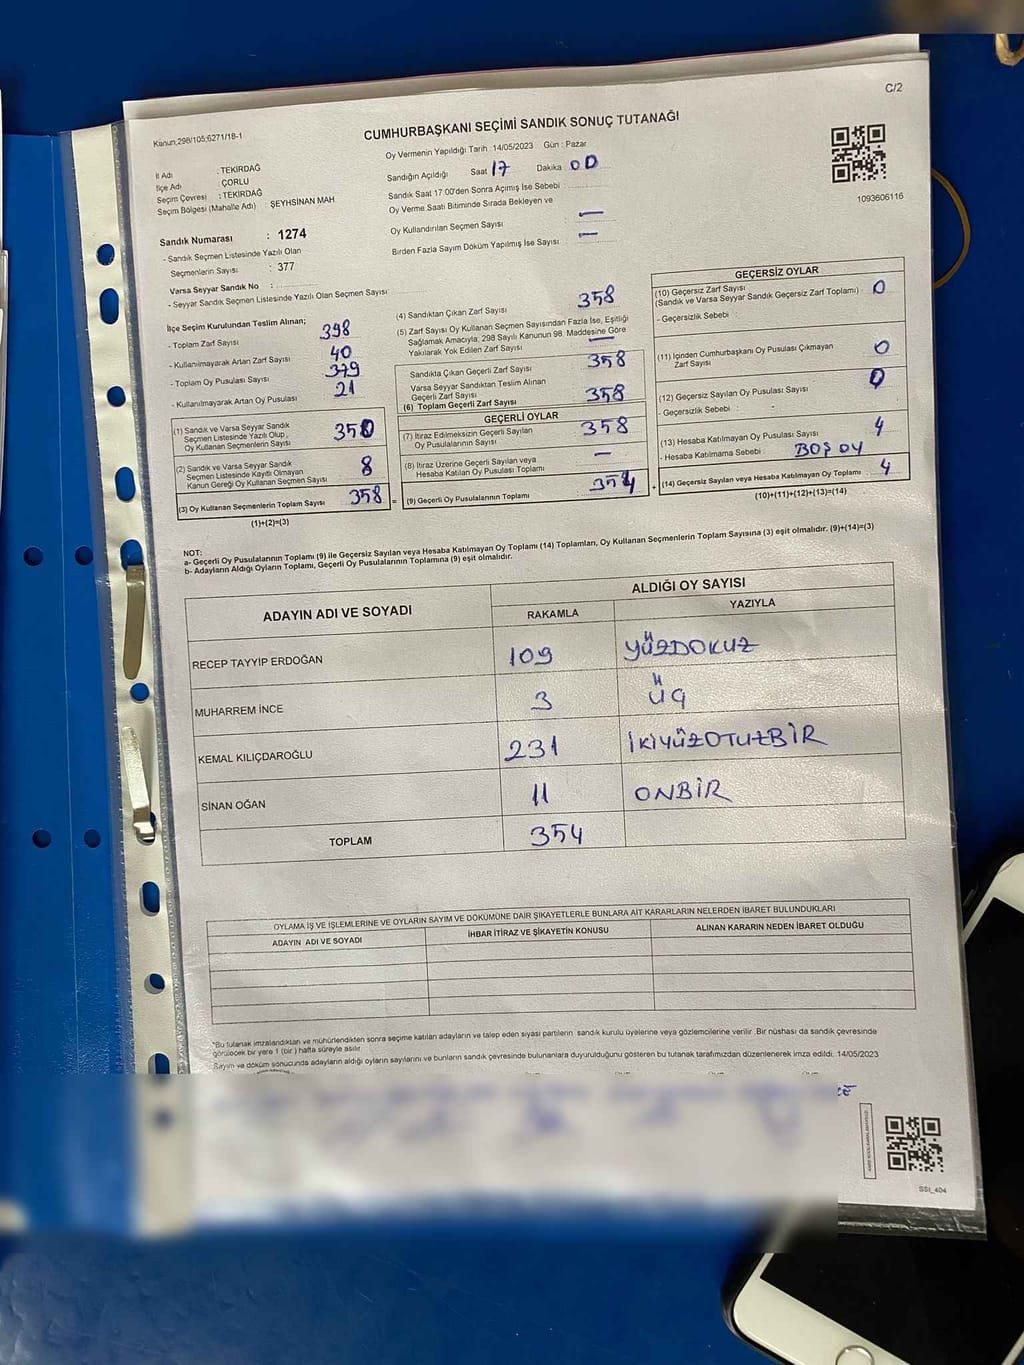 C/2
Kanun;298/105;6271/18-1
CUMHURBAŞKANI SEÇİMİ SANDIK SONUÇ TUTANAĞI
İl Adı : TEKİRDAĞ
İlçe Adı : ÇORLU
Seçim Çevresi : TEKİRDAĞ
Seçim Bölgesi (Mahalle Adı) : ŞEYHSİNAN MAH
Oy Vermenin Yapıldığı Tarih : 14/05/2023 Gün : Pazar
Sandığın Açıldığı Saat 17 Dakika 00
Sandık Saat 17:00'den Sonra Açımış İse Sebebi :
Oy Verme Saati Bitiminde Sırada Bekleyen ve
Oy Kullandırılan Seçmen Sayısı : —
Birden Fazla Sayım Döküm Yapılmış İse Sayısı : —
1093606116
Sandık Numarası : 1274
- Sandık Seçmen Listesinde Yazılı Olan
Seçmenlerin Sayısı : 377
Varsa Seyyar Sandık No :
- Seyyar Sandık Seçmen Listesinde Yazılı Olan Seçmen Sayısı:
İlçe Seçim Kurulundan Teslim Alınan;
- Toplam Zarf Sayısı 398
- Kullanılmayarak Artan Zarf Sayısı 40
- Toplam Oy Pusulası Sayısı 379
- Kullanılmayarak Artan Oy Pusulası 21
(1) Sandık ve Varsa Seyyar Sandık
Seçmen Listesinde Yazılı Olup,
Oy Kullanan Seçmenlerin Sayısı 350
(2) Sandık ve Varsa Seyyar Sandık
Seçmen Listesinde Kayıtlı Olmayan
Kanun Gereği Oy Kullanan Seçmen Sayısı 8
(3) Oy Kullanan Seçmenlerin Toplam Sayısı 358 =
(1)+(2)=(3)
(4) Sandıktan Çıkan Zarf Sayısı 358
(5) Zarf Sayısı Oy Kullanan Seçmen Sayısından Fazla İse, Eşitliği
Sağlamak Amacıyla; 298 Sayılı Kanunun 98. Maddesine Göre
Yakılarak Yok Edilen Zarf Sayısı —
Sandıkta Çıkan Geçerli Zarf Sayısı 358
Varsa Seyyar Sandıktan Teslim Alınan
Geçerli Zarf Sayısı
(6) Toplam Geçerli Zarf Sayısı 358
GEÇERLİ OYLAR
(7) İtiraz Edilmeksizin Geçerli Sayılan
Oy Pusulalarının Sayısı 358
(8) İtiraz Üzerine Geçerli Sayılan veya
Hesaba Katılan Oy Pusulası Toplamı —
(9) Geçerli Oy Pusulalarının Toplamı 354 +
GEÇERSİZ OYLAR
(10) Geçersiz Zarf Sayısı
(Sandık ve Varsa Seyyar Sandık Geçersiz Zarf Toplamı) : 0
- Geçersizlik Sebebi :
(11) İçinden Cumhurbaşkanı Oy Pusulası Çıkmayan
Zarf Sayısı 0
(12) Geçersiz Sayılan Oy Pusulası Sayısı 0
- Geçersizlik Sebebi :
(13) Hesaba Katılmayan Oy Pusulası Sayısı 4
- Hesaba Katılmama Sebebi : BOŞ OY
(14) Geçersiz Sayılan veya Hesaba Katılmayan Oy Toplamı 4
(10)+(11)+(12)+(13)=(14)
NOT:
a- Geçerli Oy Pusulalarının Toplamı (9) ile Geçersiz Sayılan veya Hesaba Katılmayan Oy Toplamı (14) Toplamları, Oy Kullanan Seçmenlerin Toplam Sayısına (3) eşit olmalıdır. (9)+(14)=(3)
b- Adayların Aldığı Oyların Toplamı, Geçerli Oy Pusulalarının Toplamına (9) eşit olmalıdır.
ADAYIN ADI VE SOYADI
ALDIĞI OY SAYISI
RAKAMLA YAZIYLA
RECEP TAYYİP ERDOĞAN 109 YÜZDOKUZ
MUHARREM İNCE 3 ÜÇ
KEMAL KILIÇDAROĞLU 231 İKİYÜZOTUZBİR
SİNAN OĞAN 11 ONBİR
TOPLAM 354
OYLAMA İŞ VE İŞLEMLERİNE VE OYLARIN SAYIM VE DÖKÜMÜNE DAİR ŞİKAYETLERLE BUNLARA AİT KARARLARIN NELERDEN İBARET BULUNDUKLARI
ADAYIN ADI VE SOYADI İHBAR İTİRAZ VE ŞİKAYETİN KONUSU ALINAN KARARIN NEDEN İBARET OLDUĞU
*Bu tutanak imzalandıktan ve mühürlendikten sonra seçime katılan adayların ve talep eden siyasi partilerin sandık kurulu üyelerine veya gözlemcilerine verilir. Bir nüshası da sandık çevresinde
görülecek bir yere 1 (bir ) hafta süreyle asılır.
Sayım ve döküm sonucunda adayların aldığı oyların sayılarını ve bunların sandık çevresinde bulunanlara duyurulduğunu gösteren bu tutanak tarafımızdan düzenlenerek imza edildi. 14/05/2023
SSI_404